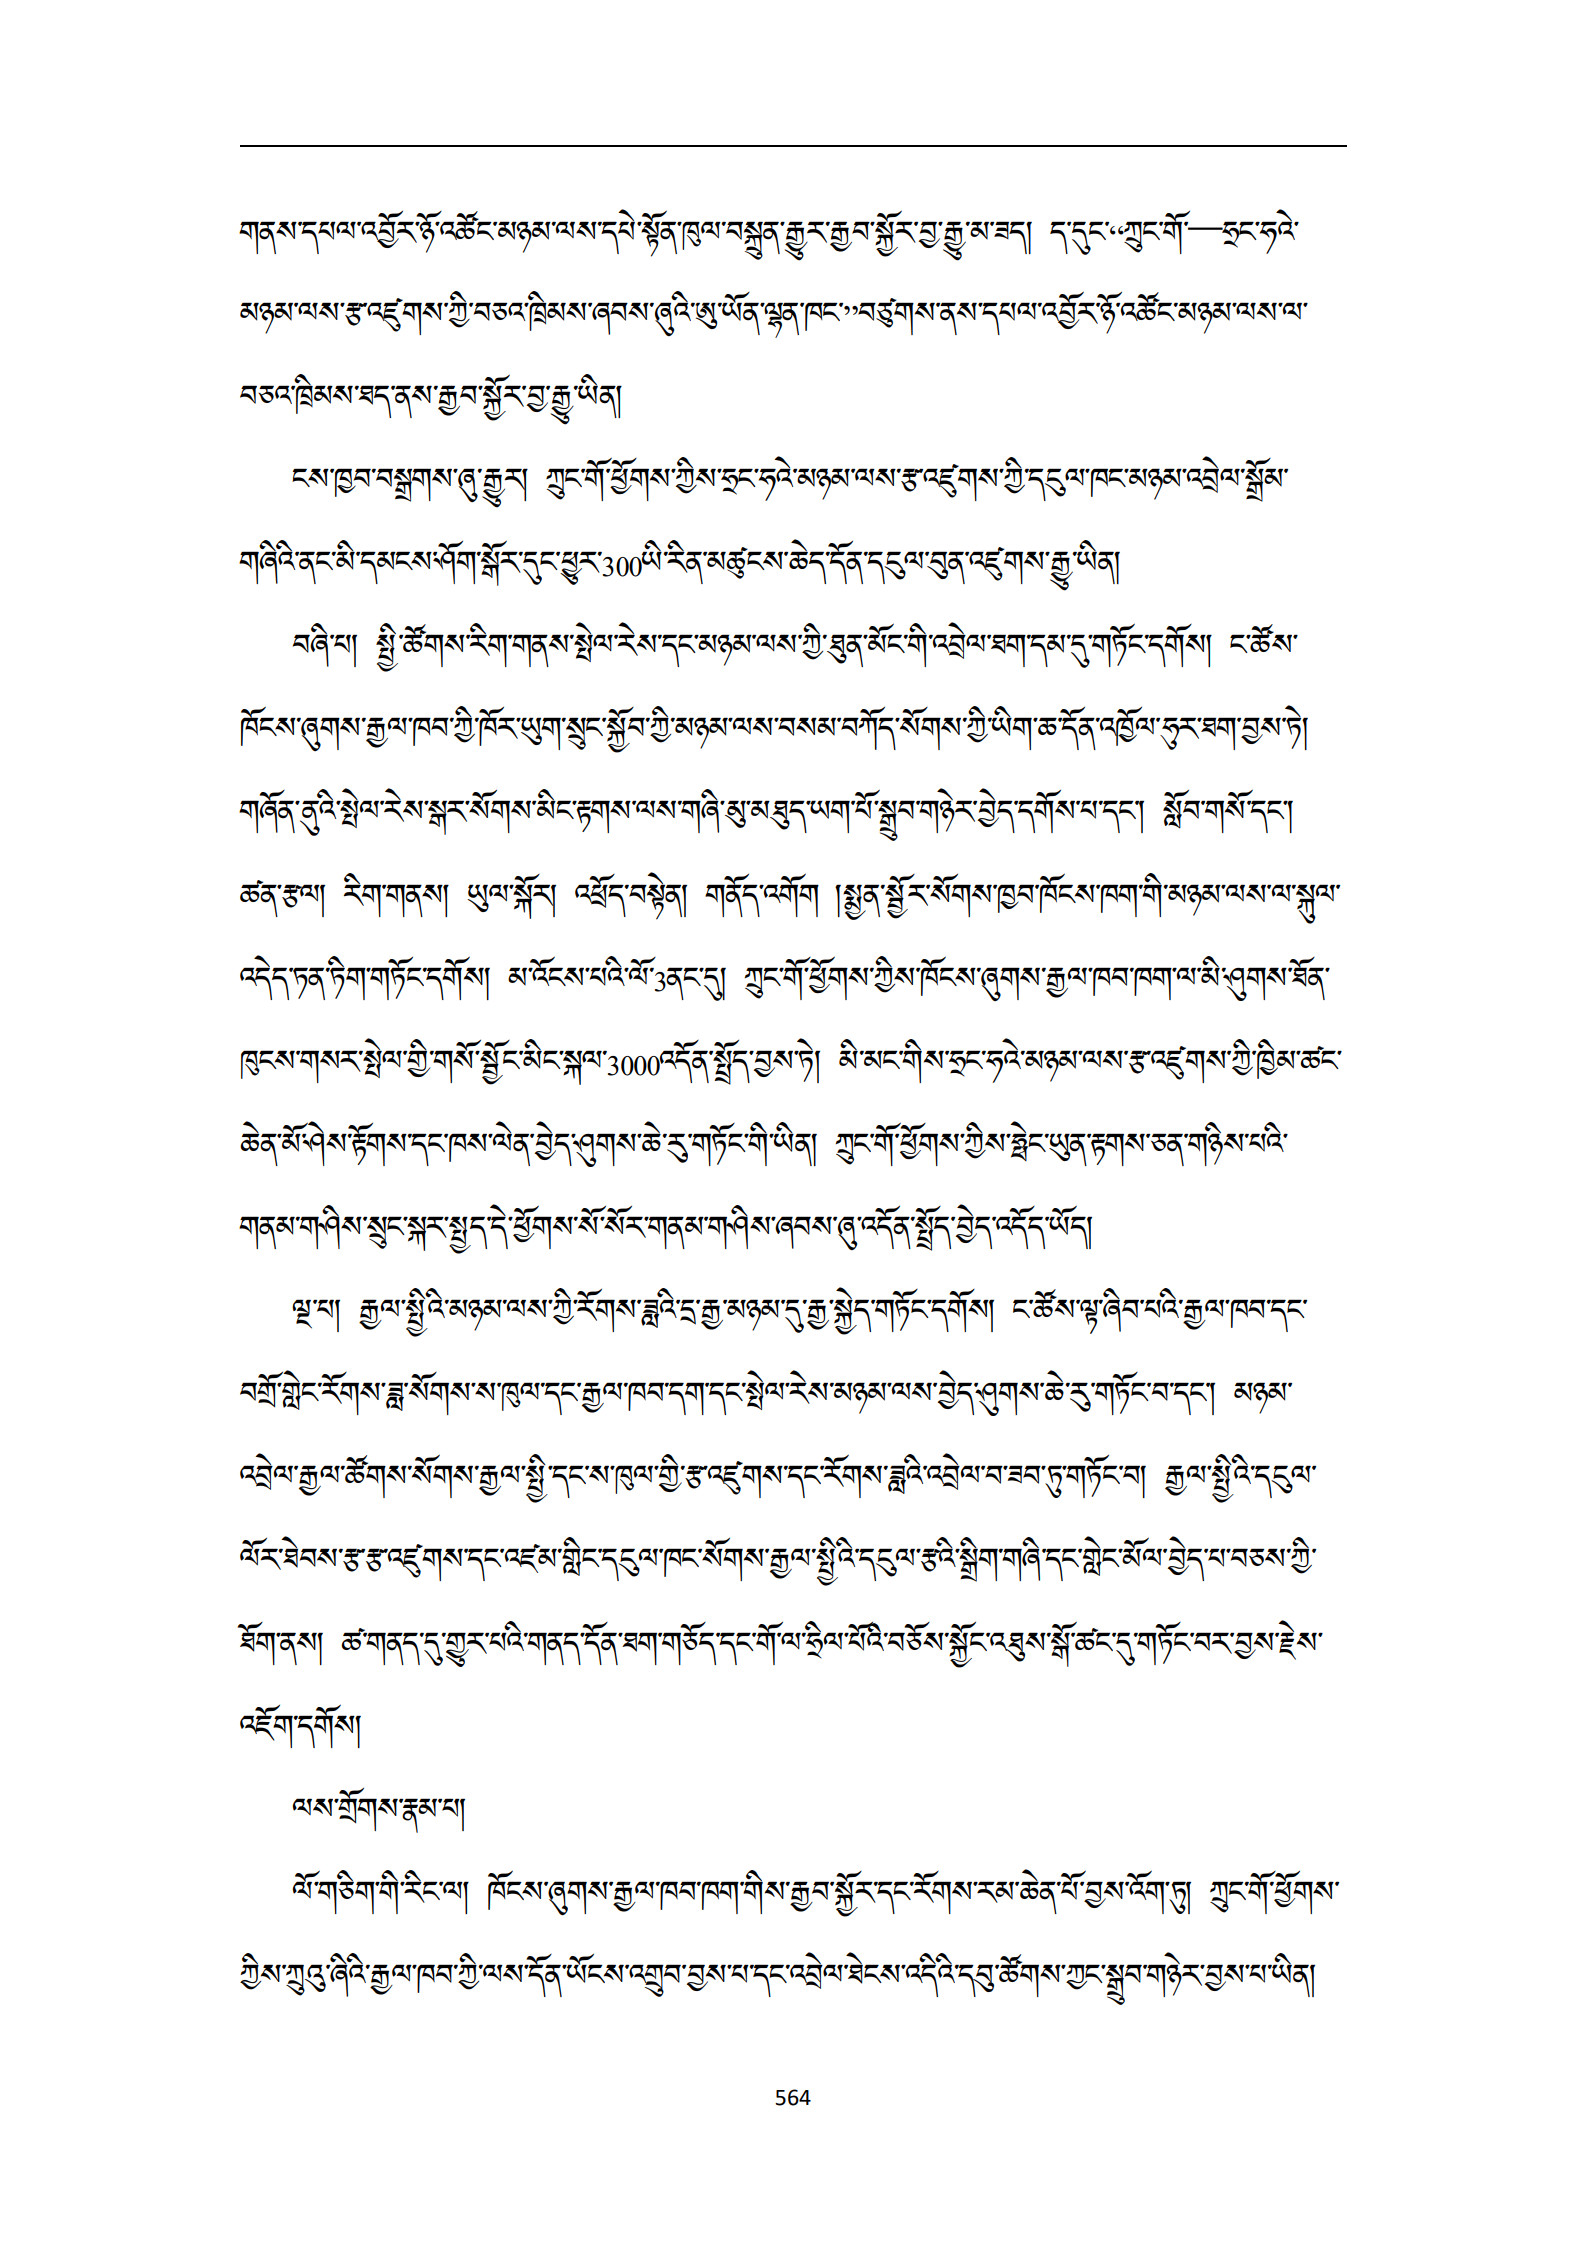 གནས་དཔལ་འབྱོར་ཉོ་འཚོང་མཉམ་ལས་དཔེ་སྟོན་ཁུལ་བསྐྲུན་རྒྱུར་རྒྱབ་སྐྱོར་བྱ་རྒྱུ་མ་ཟད། ད་དུང་“ཀྲུང་གོ་—ཧྲང་ཧའེ་
མཉམ་ལས་རྩ་འཛུགས་ཀྱི་བཅའ་ཁྲིམས་ཞབས་ཞུའི་ཨུ་ཡོན་ལྷན་ཁང་”བཙུགས་ནས་དཔལ་འབྱོར་ཉོ་འཚོང་མཉམ་ལས་ལ་
བཅའ་ཁྲིམས་ཐད་ནས་རྒྱབ་སྐྱོར་བྱ་རྒྱུ་ཡིན།
ངས་ཁྱབ་བསྒྲགས་ཞུ་རྒྱུར། ཀྲུང་གོ་ཕྱོགས་ཀྱིས་ཧྲང་ཧའེ་མཉམ་ལས་རྩ་འཛུགས་ཀྱི་དངུལ་ཁང་མཉམ་འབྲེལ་སྒྲོམ་
གཞིའི་ནང་མི་དམངས་ཤོག་སྒོར་དུང་ཕྱུར་300ཡི་རིན་མཚུངས་ཆེད་དོན་དངུལ་བུན་འཛུགས་རྒྱུ་ཡིན།
བཞི་པ། སྤྱི་ཚོགས་རིག་གནས་སྤེལ་རེས་དང་མཉམ་ལས་ཀྱི་ཐུན་མོང་གི་འབྲེལ་ཐག་དམ་དུ་གཏོང་དགོས། ང་ཚོས་
ཁོངས་ཞུགས་རྒྱལ་ཁབ་ཀྱི་ཁོར་ཡུག་སྲུང་སྐྱོབ་ཀྱི་མཉམ་ལས་བསམ་བཀོད་སོགས་ཀྱི་ཡིག་ཆ་དོན་འཁྱོལ་ཧུར་ཐག་བྱས་ཏེ།
གཞོན་ནུའི་སྤེལ་རེས་སྒར་སོགས་མིང་རྟགས་ལས་གཞི་མུ་མཐུད་ཡག་པོ་སྒྲུབ་གཉེར་བྱེད་དགོས་པ་དང༌། སློབ་གསོ་དང༌།
ཚན་རྩལ། རིག་གནས། ཡུལ་སྐོར། འཕྲོད་བསྟེན། གནོད་འགོག །སྨྱན་སྦྱོར་སོགས་ཁྱབ་ཁོངས་ཁག་གི་མཉམ་ལས་ལ་སྐུལ་
འདེད་ཏན་ཏིག་གཏོང་དགོས། མ་འོངས་པའི་ལོ་3ནང་དུ། ཀྲུང་གོ་ཕྱོགས་ཀྱིས་ཁོངས་ཞུགས་རྒྱལ་ཁབ་ཁག་ལ་མི་ཤུགས་ཐོན་
ཁུངས་གསར་སྤེལ་གྱི་གསོ་སྦྱོང་མིང་སྐལ་3000འདོན་སྤྲོད་བྱས་ཏེ། མི་མང་གིས་ཧྲང་ཧའེ་མཉམ་ལས་རྩ་འཛུགས་ཀྱི་ཁྱིམ་ཚང་
ཆེན་མོ་ཤེས་རྟོགས་དང་ཁས་ལེན་བྱེད་ཤུགས་ཆེ་རུ་གཏོང་གི་ཡིན། ཀྲུང་གོ་ཕྱོགས་ཀྱིས་ཧྥེང་ཡུན་རྟགས་ཅན་གཉིས་པའི་
གནམ་གཤིས་སྲུང་སྐར་སྤྱད་དེ་ཕྱོགས་སོ་སོར་གནམ་གཤིས་ཞབས་ཞུ་འདོན་སྤྲོད་བྱེད་འདོད་ཡོད།
ལྔ་པ། རྒྱལ་སྤྱིའི་མཉམ་ལས་ཀྱི་རོགས་ཟླའི་དྲ་རྒྱ་མཉམ་དུ་རྒྱ་སྐྱེད་གཏོང་དགོས། ང་ཚོས་ལྟ་ཞིབ་པའི་རྒྱལ་ཁབ་དང་
བགྲོ་གླེང་རོགས་ཟླ་སོགས་ས་ཁུལ་དང་རྒྱལ་ཁབ་དག་དང་སྤེལ་རེས་མཉམ་ལས་བྱེད་ཤུགས་ཆེ་རུ་གཏོང་བ་དང༌། མཉམ་
འབྲེལ་རྒྱལ་ཚོགས་སོགས་རྒྱལ་སྤྱི་དང་ས་ཁུལ་གྱི་རྩ་འཛུགས་དང་རོགས་ཟླའི་འབྲེལ་བ་ཟབ་ཏུ་གཏོང་བ། རྒྱལ་སྤྱིའི་དངུལ་
ལོར་ཐེབས་རྩ་རྩ་འཛུགས་དང་འཛམ་གླིང་དངུལ་ཁང་སོགས་རྒྱལ་སྤྱིའི་དངུལ་རྩའི་སྒྲིག་གཞི་དང་གླེང་མོལ་བྱེད་པ་བཅས་ཀྱི་
ཐོག་ནས། ཚ་གནད་དུ་གྱུར་པའི་གནད་དོན་ཐག་གཅོད་དང་གོ་ལ་ཧྲིལ་པོའི་བཅོས་སྐྱོང་འཐུས་སྒོ་ཚང་དུ་གཏོང་བར་བྱས་རྗེས་
འཇོག་དགོས།
ལས་གྲོགས་རྣམ་པ།
ལོ་གཅིག་གི་རིང་ལ། ཁོངས་ཞུགས་རྒྱལ་ཁབ་ཁག་གིས་རྒྱབ་སྐྱོར་དང་རོགས་རམ་ཆེན་པོ་བྱས་འོག་ཏུ། ཀྲུང་གོ་ཕྱོགས་
ཀྱིས་ཀྲུའུ་ཞིའི་རྒྱལ་ཁབ་ཀྱི་ལས་དོན་ཡོངས་འགྲུབ་བྱས་པ་དང་འབྲེལ་ཐེངས་འདིའི་དབུ་ཚོགས་ཀྱང་སྒྲུབ་གཉེར་བྱས་པ་ཡིན།
564